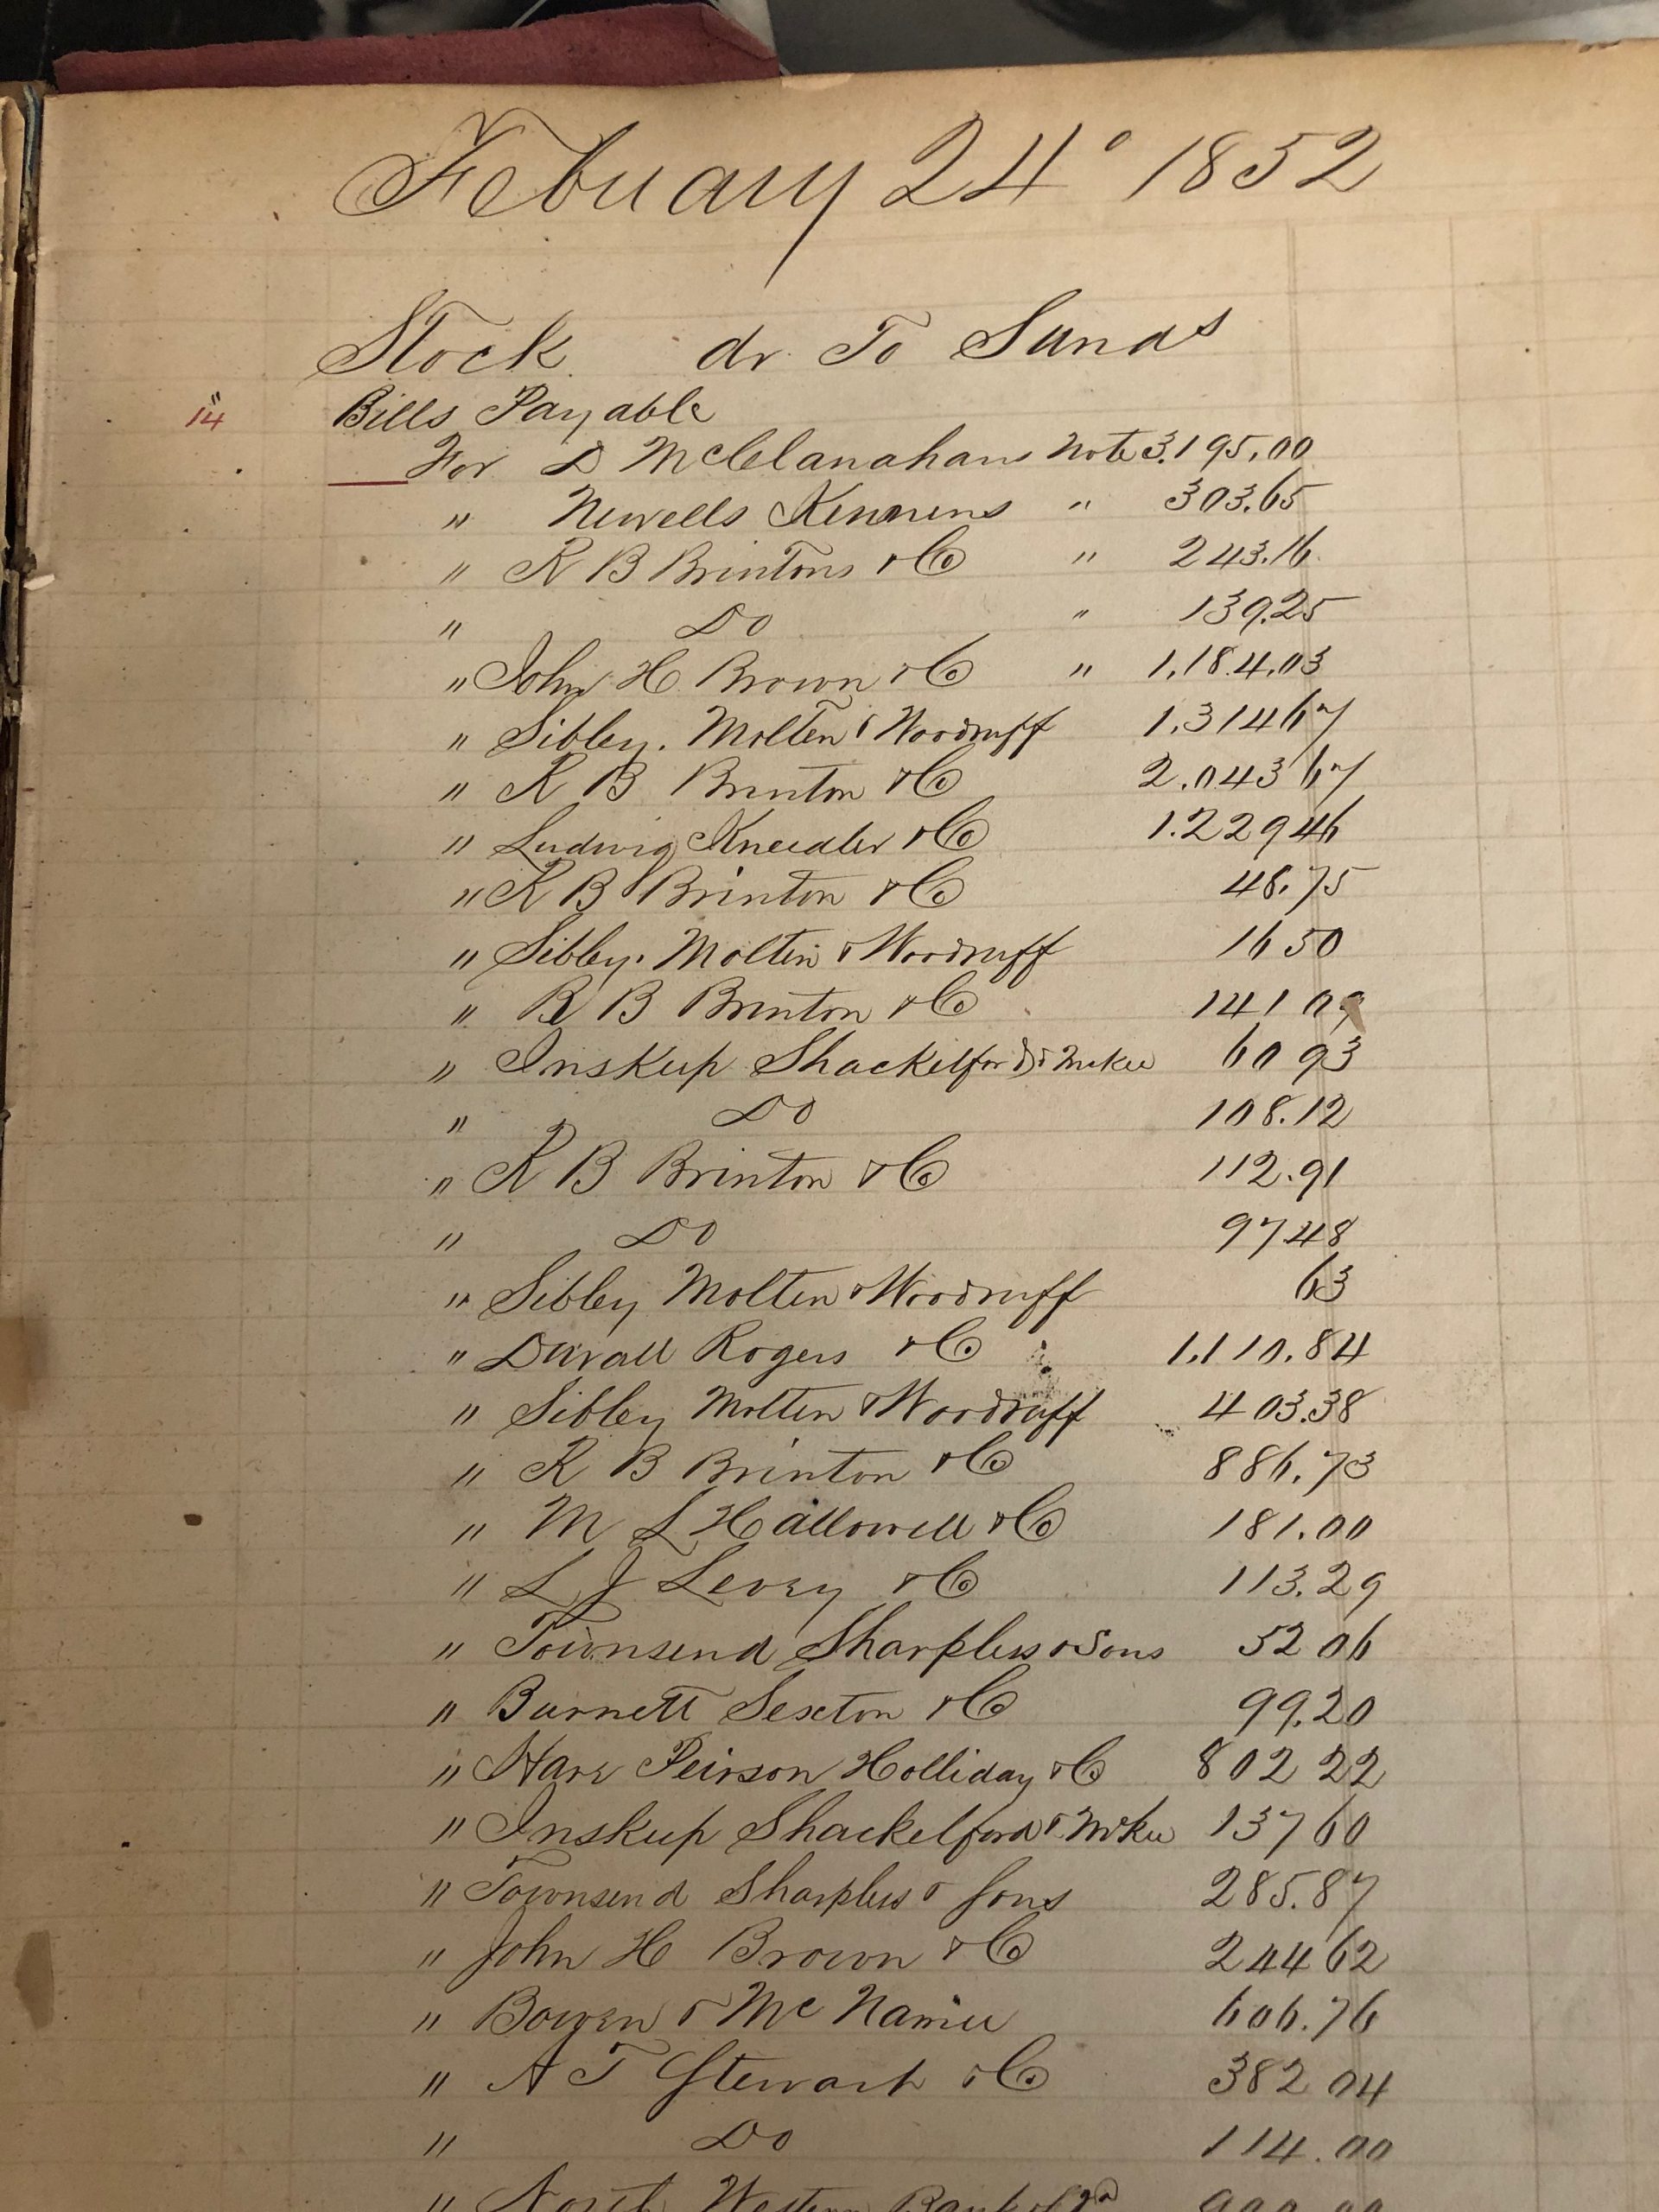 Febuary 24° 1852
Stock dr. To Sunds
14 Bills Payable
For D McClanahans Note 3.195.00
" Newells Kennens " 303.65
" R B Brintons & Co " 243.16
" Do " 139.25
" John H Brown & Co " 1.184.03
" Sibley. Molten & Woodruff 1.314 67
" R B Brinton & Co 2.043 67
" Ludwig Kneedler & Co 1.229 46
" R B Brinton & Co 48.75
" Sibley. Molten & Woodruff 16 50
" R B Brinton & Co 141 09
" Inskeep Shackelford & McKee 60 93
" Do 108.12
" R B Brinton & Co 112.91
" Do 97.48
" Sibley Molten & Woodruff 63
" Duvall Rogers & Co 1.110.84
" Sibley Molten & Woodruff 403.38
" R B Brinton & Co 886.73
" M L Hallowell & Co 181.00
" L J Levey & Co 113.29
" Townsend Sharpless & Sons 52 06
" Burnett Sexton & Co 99.20
" Hare Peirson Holliday & Co 802 22
" Inskeep Shackelford & McKee 137 60
" Townsend Sharpless & Sons 285.87
" John H Brown & Co 244 62
" Bowen & Mc Namee 606.76
" A T Stewart & Co 382 04
" Do 114.00
" North Western Bank of Va